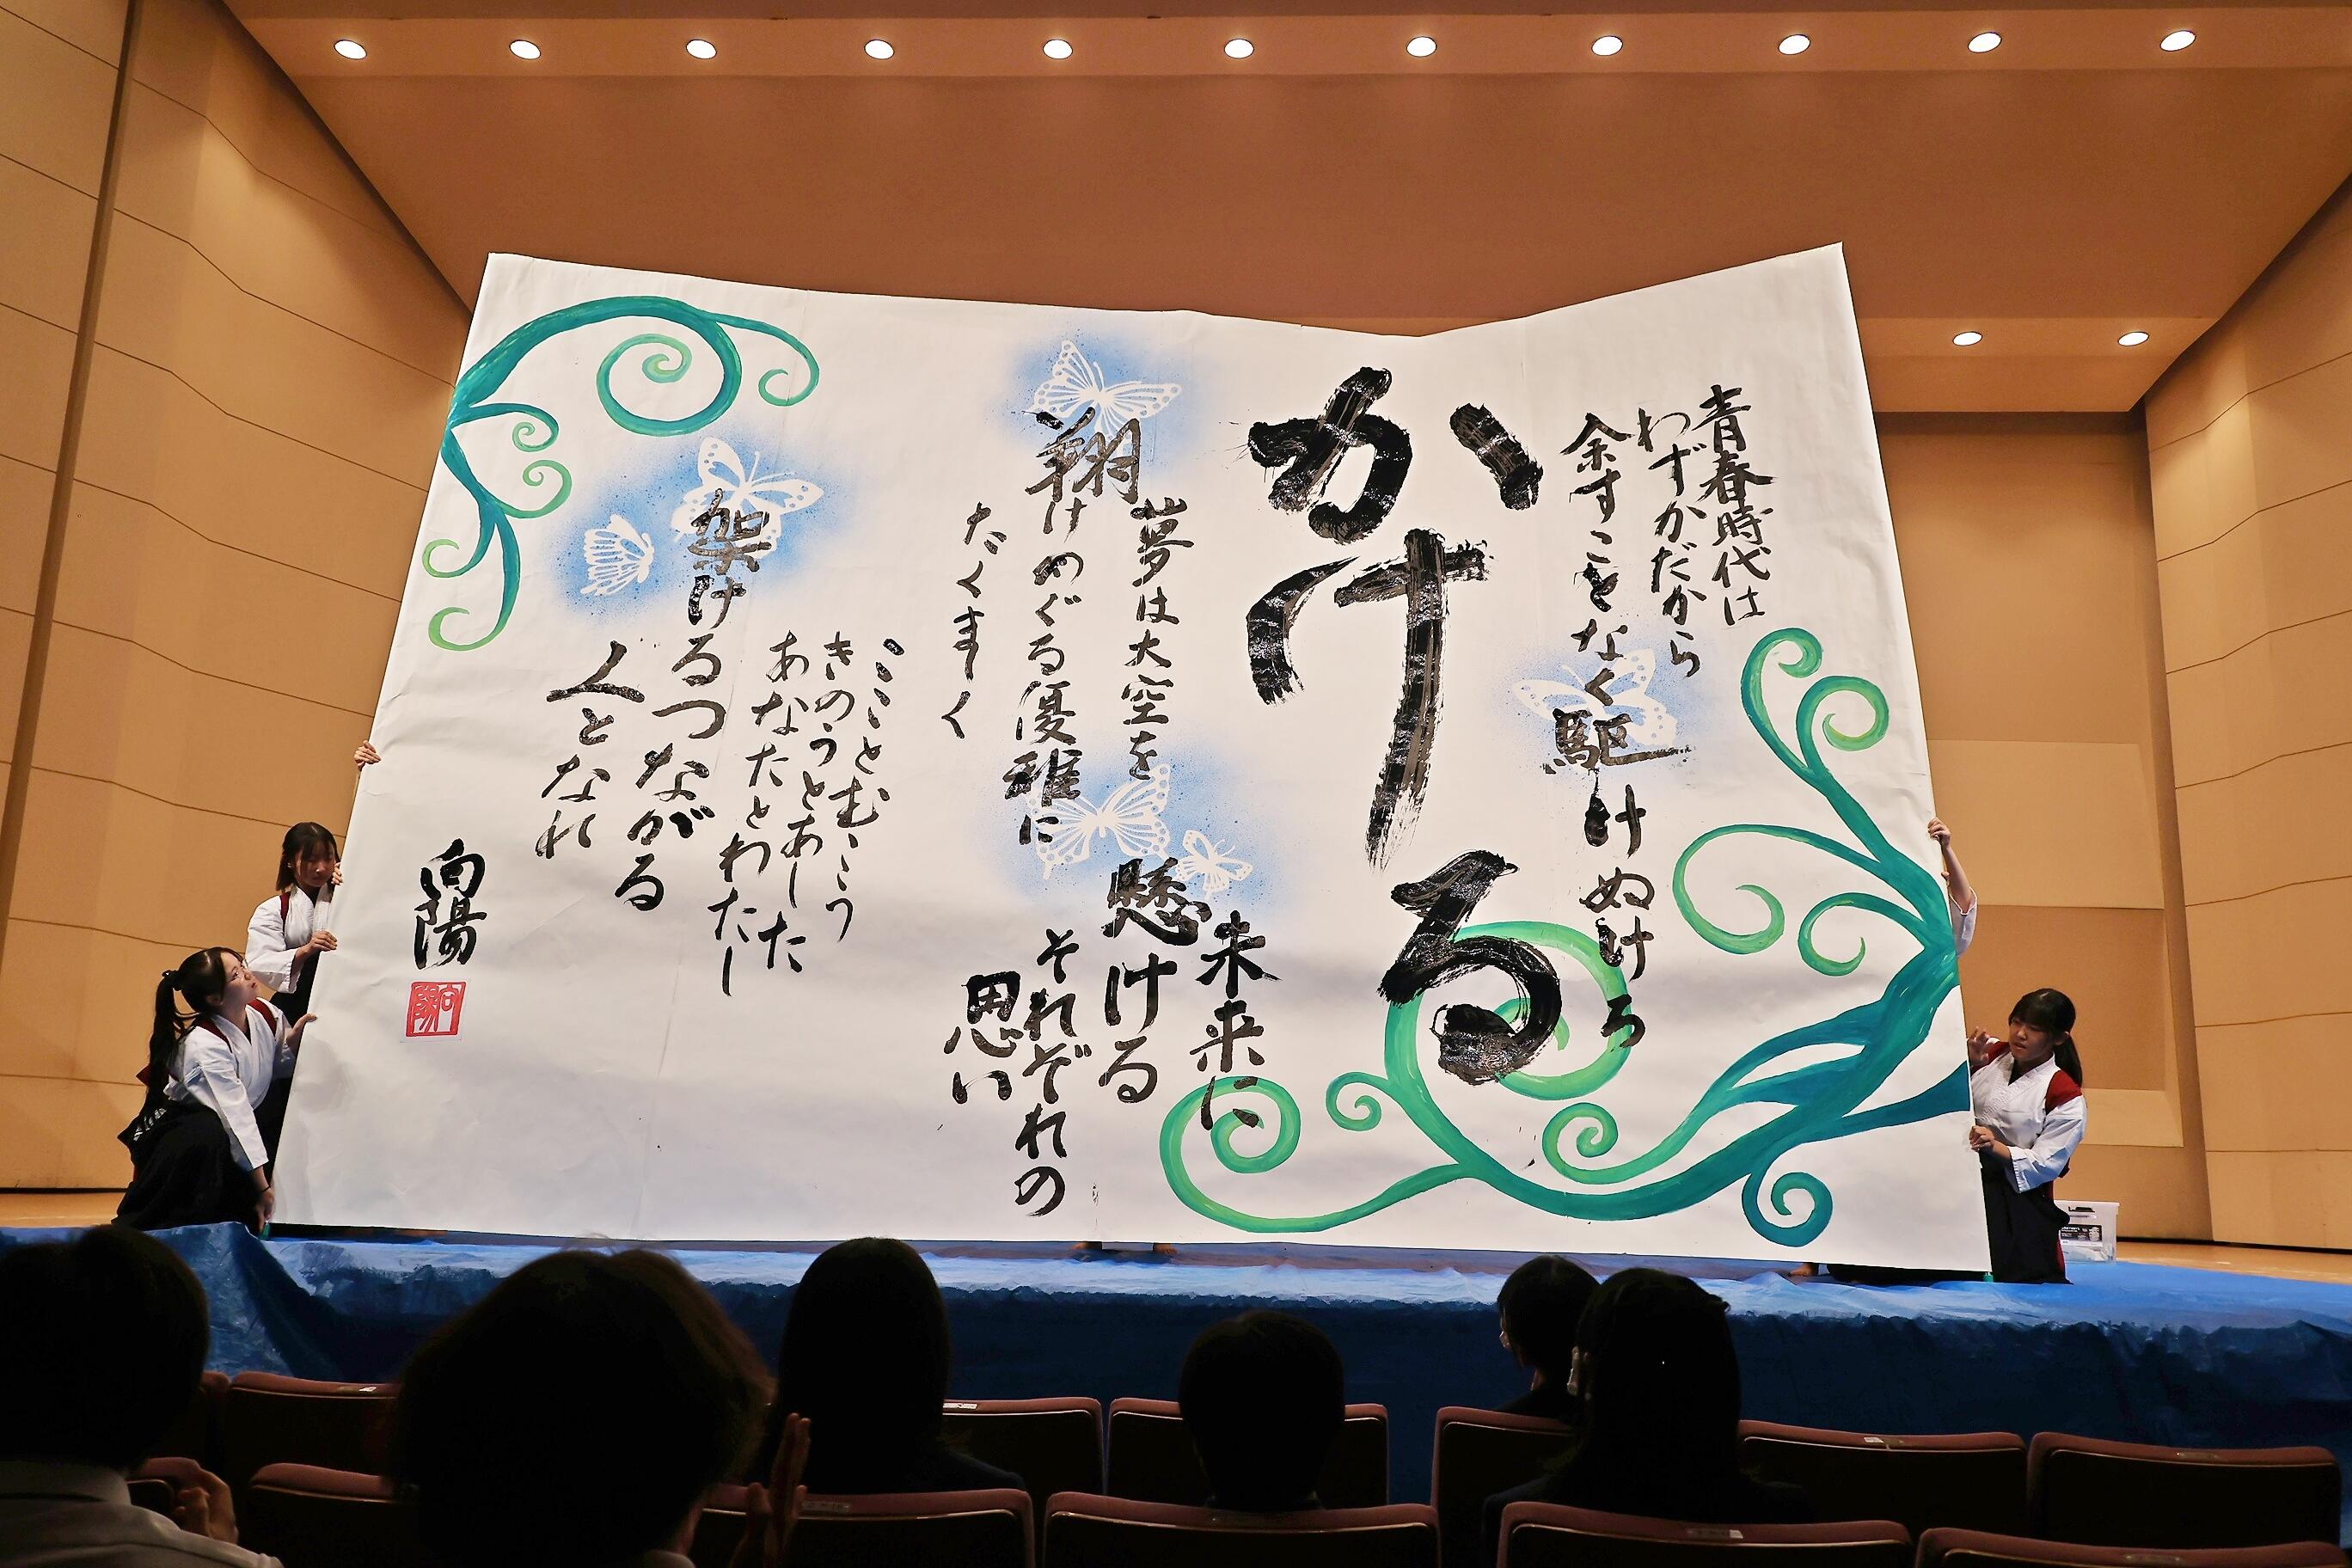 青春時代は
わずかだから
余すことなく駆けぬけろ
かける
夢は大空を
翔けめぐる優雅に
たくましく
未来に
懸ける
それぞれの
思い
こことむこう
きのうとあした
あなたとわたし
架けるつながる
人となれ
向陽
向陽